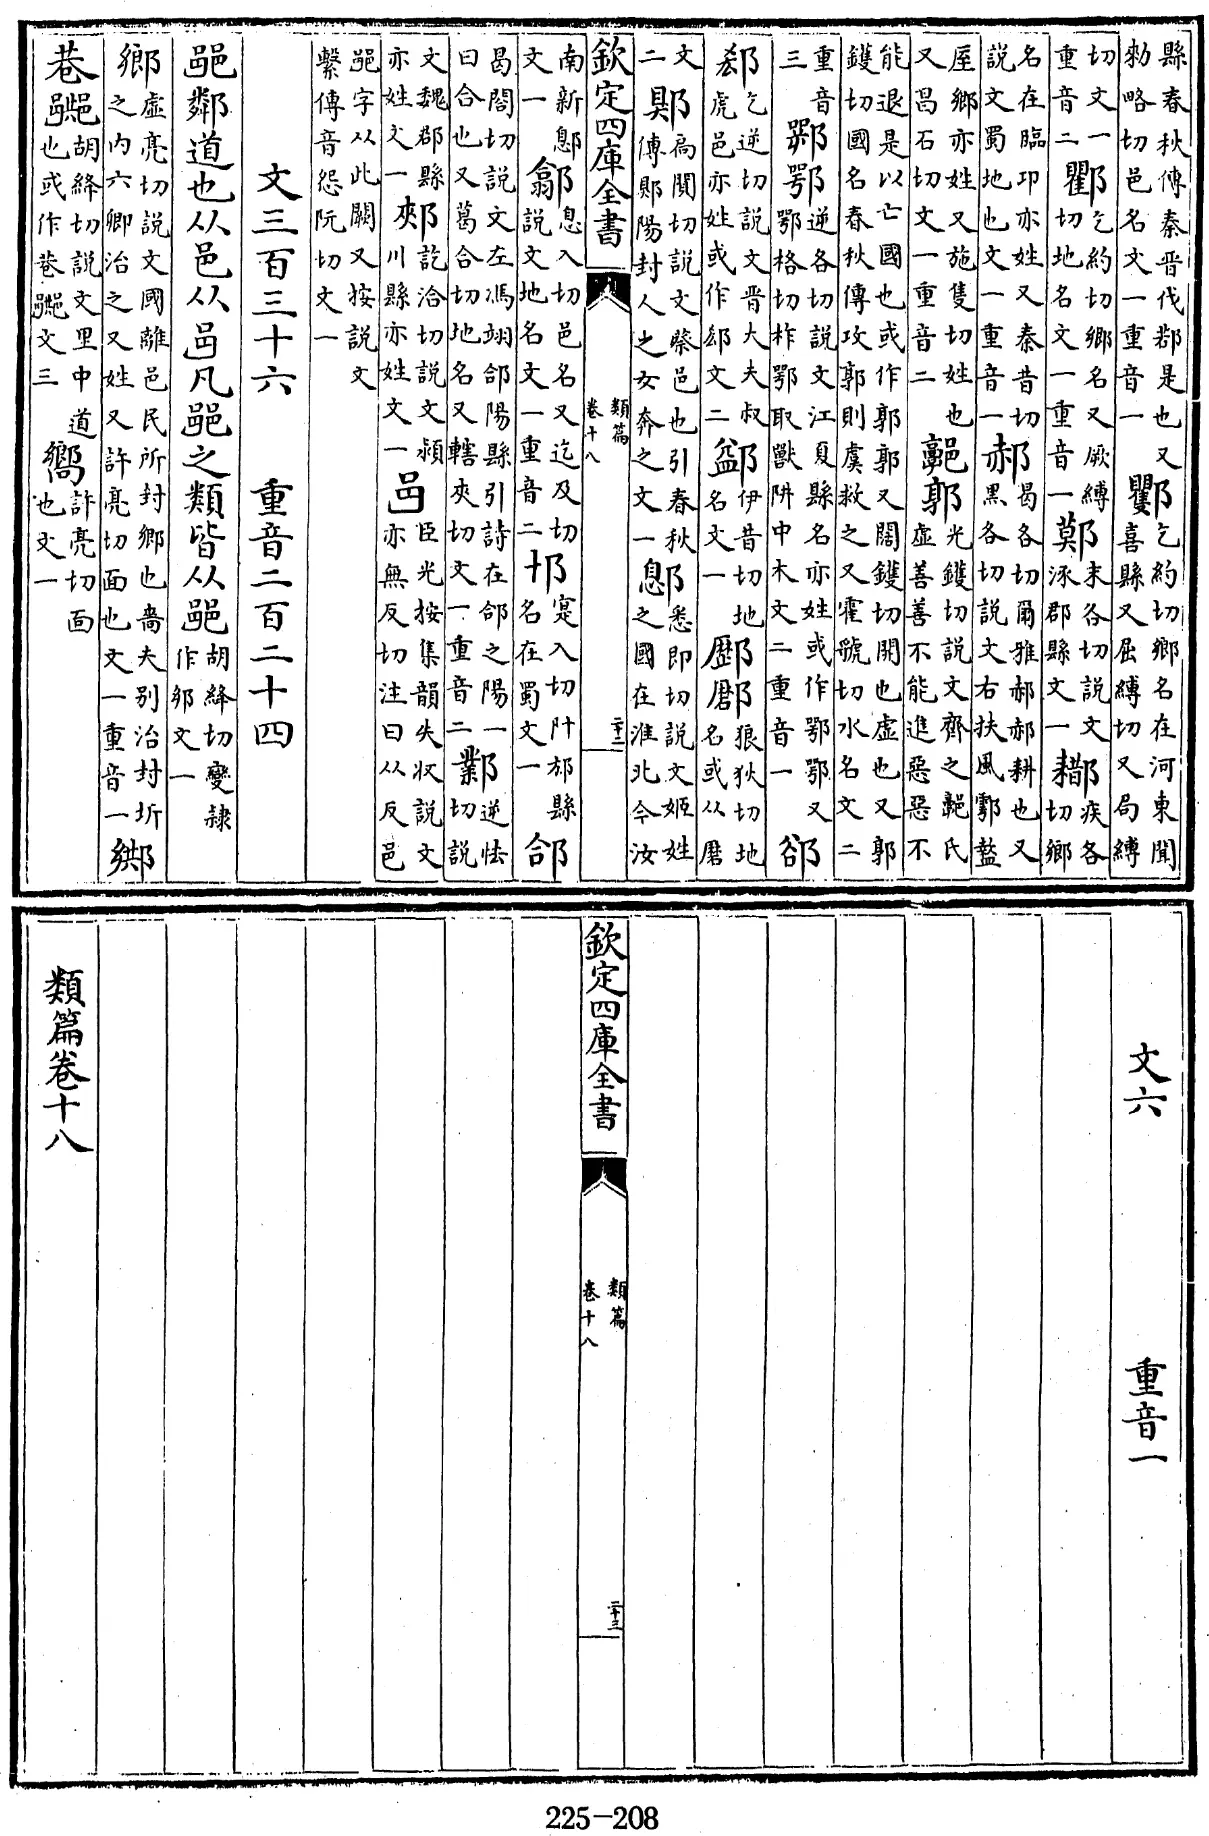 縣春秋傳秦晉伐鄀是也又
勑略切邑名文一重音一
乞約切鄉名在河東聞
喜縣又屈縛切又局縛
切文一
重音二
乞約切鄉名又厥縛
切地名文一重音一
鄚
末各切說文
涿郡縣文一
疾各
切鄉
名在臨卭亦姓又秦昔切
說文蜀地也文一重音一
郝
曷各切爾雅郝郝耕也又
黑各切說文右扶風鄠盩
厔鄉亦姓又施隻切姓也
又昌石切文一重音二
郭
光鑊切說文齊之氏
虛善善不能進惡惡不
能退是以亡國也或作郭郭又闊鑊切開也虛也又郭
鑊切國名春秋傳攻郭則虞救之又霍虢切水名文二
重音
三
鄂
逆各切說文江夏縣名亦姓或作鄂鄂又
鄂格切柞鄂取獸阱中木文二重音一
郤
乞逆切說文晉大夫叔
虎邑亦姓或作郄文二
伊昔切地
名文一
狼狄切地
名或从厤
文
二
郹
扃闃切說文蔡邑也引春秋
傳郹陽封人之女奔之文一
鄎
悉即切說文姬姓
之國在淮北今汝
欽定四庫全書
類篇
卷十八
二十二
南新鄎
文一
息入切邑名又迄及切
說文地名文一重音二
寔入切什邡縣
名在蜀文一
郃
曷閤切說文左馮翊郃陽縣引詩在郃之陽一
曰合也又葛合切地名又轄夾切文一重音二
鄴
逆怯
切說
文魏郡縣
亦姓文一
郟
訖洽切說文潁
川縣亦姓文一
𨙨
臣光按集韻失收說文
亦無反切注曰从反邑
𨛜字从此闕又按說文
繫傳音怨阮切文一
文三百三十六 重音二百二十四
𨛜鄰道也从邑从𨙨凡𨛜之類皆从𨛜
胡絳切變隷
作郷文一
鄉
虛亮切說文國離邑民所封鄉也嗇夫別治封圻
之內六卿治之又姓又許亮切面也文一重音一
巷
胡絳切說文里中道
也或作巷文三
嚮
許亮切面
也文一
文六 重音一
欽定四庫全書
類篇
卷十八
二十三
類篇卷十八
225-208